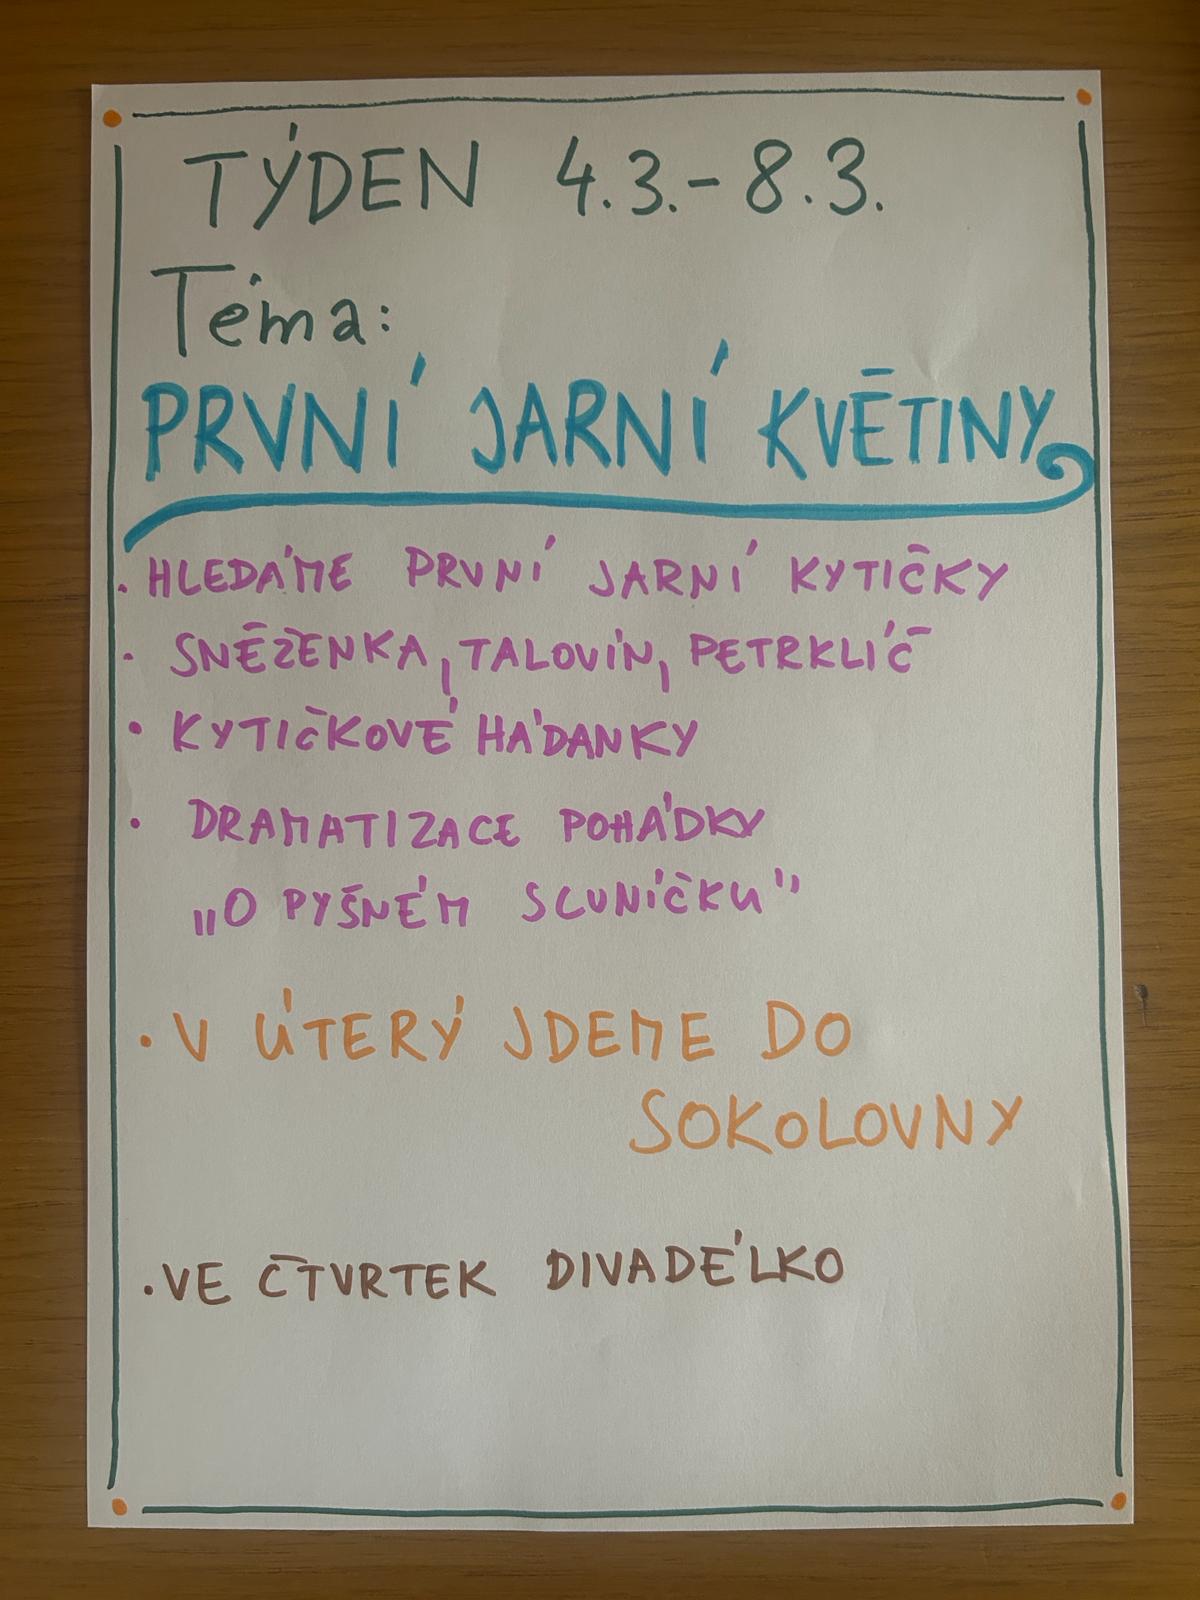 TÝDEN 4.3.-8.3.
Téma:
PRVNÍ JARNÍ KVĚTINY
• HLEDÁME PRVNÍ JARNÍ KYTIČKY
• SNĚŽENKA, TALOVÍN, PETRKLÍČ
• KYTIČKOVÉ HÁDANKY
• DRAMATIZACE POHÁDKY
„O PYŠNÉM SLUNÍČKU"
• V ÚTERÝ JDEME DO
SOKOLOVNY
• VE ČTVRTEK DIVADÉLKO